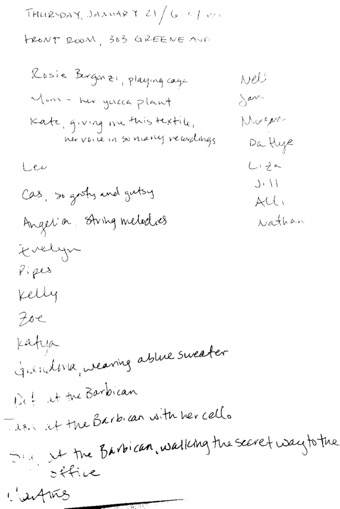 THURSDAY, JANUARY 21/6
FRONT ROOM, 303 GREENE AVE
Rosie Bergonzi, playing cage
Mom - her yucca plant
Kate, giving me this textile,
her voice in so many recordings
Leo
Cas, so gusty and gutsy
Angelia. String melodies
Evelyn
Pipes
Kelly
Zoe
Katya
Grandma, wearing a blue sweater
at the Barbican
at the Barbican with her cello
at the Barbican, walking the secret way to the
office
Neil
Jan
Morgan
Da Hye
Liza
Jill
Alli
Nathan